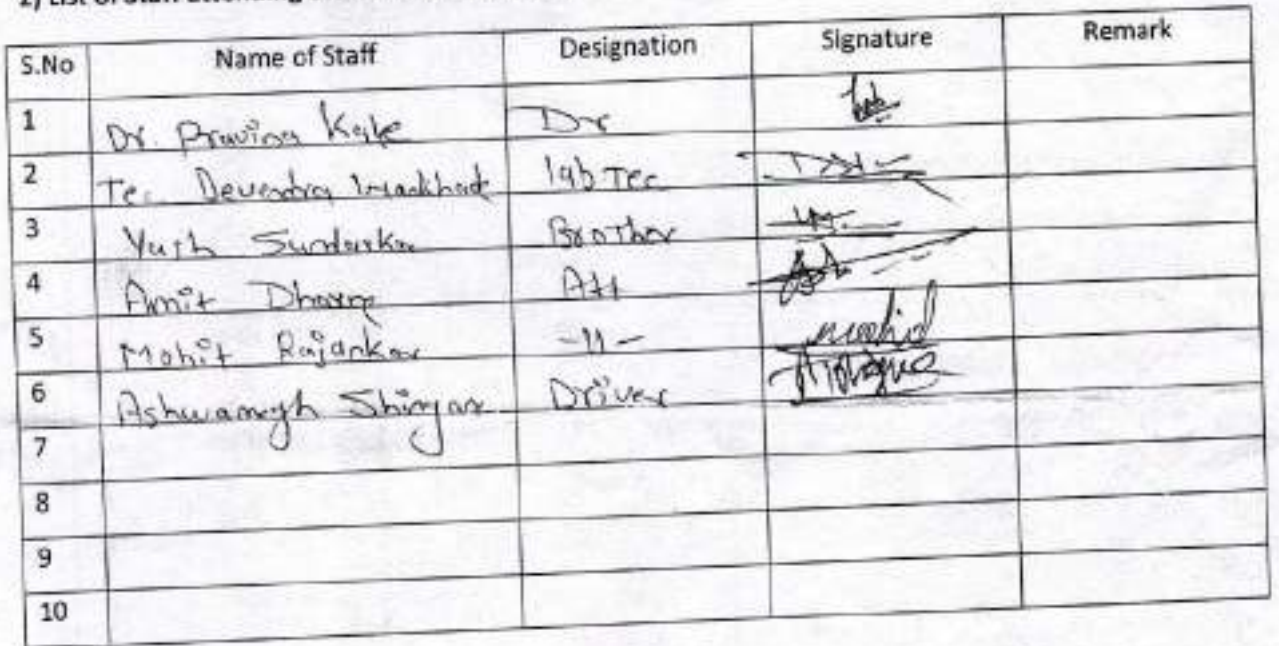 2) List of Staff attending
S.No Name of Staff Designation Signature Remark
1 Dr. Pravina Kale Dr
2 Tec Devendra lab Tec
3 Yush Sundarkar Brother
4 Amit Dhorge Att
5 Mohit Rajankar -11- Mohid
6 Ashwamegh Shingar Driver
7
8
9
10